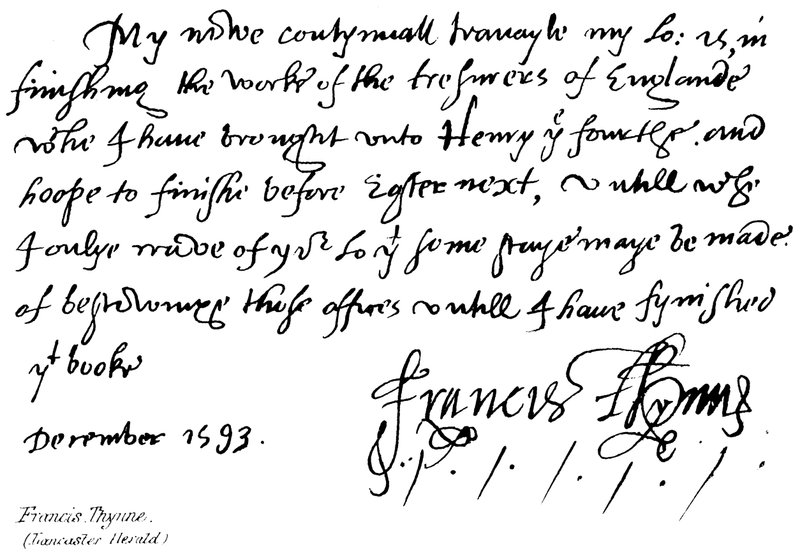 My nowe contynuall travayle my lo: is, in
finishing the worke of the tresurers of Englande
whe I have brought unto Henry yᵉ fourthe. and
hoope to finishe before Egster next, vntill whe
I onlye crave of yoʳ lo yᵗ some staye maye be made
of bestowinge those offices vntill I have fynished
yᵗ booke
December 1593.
Francis Thynne
Francis Thynne.
(Lancaster Herald)